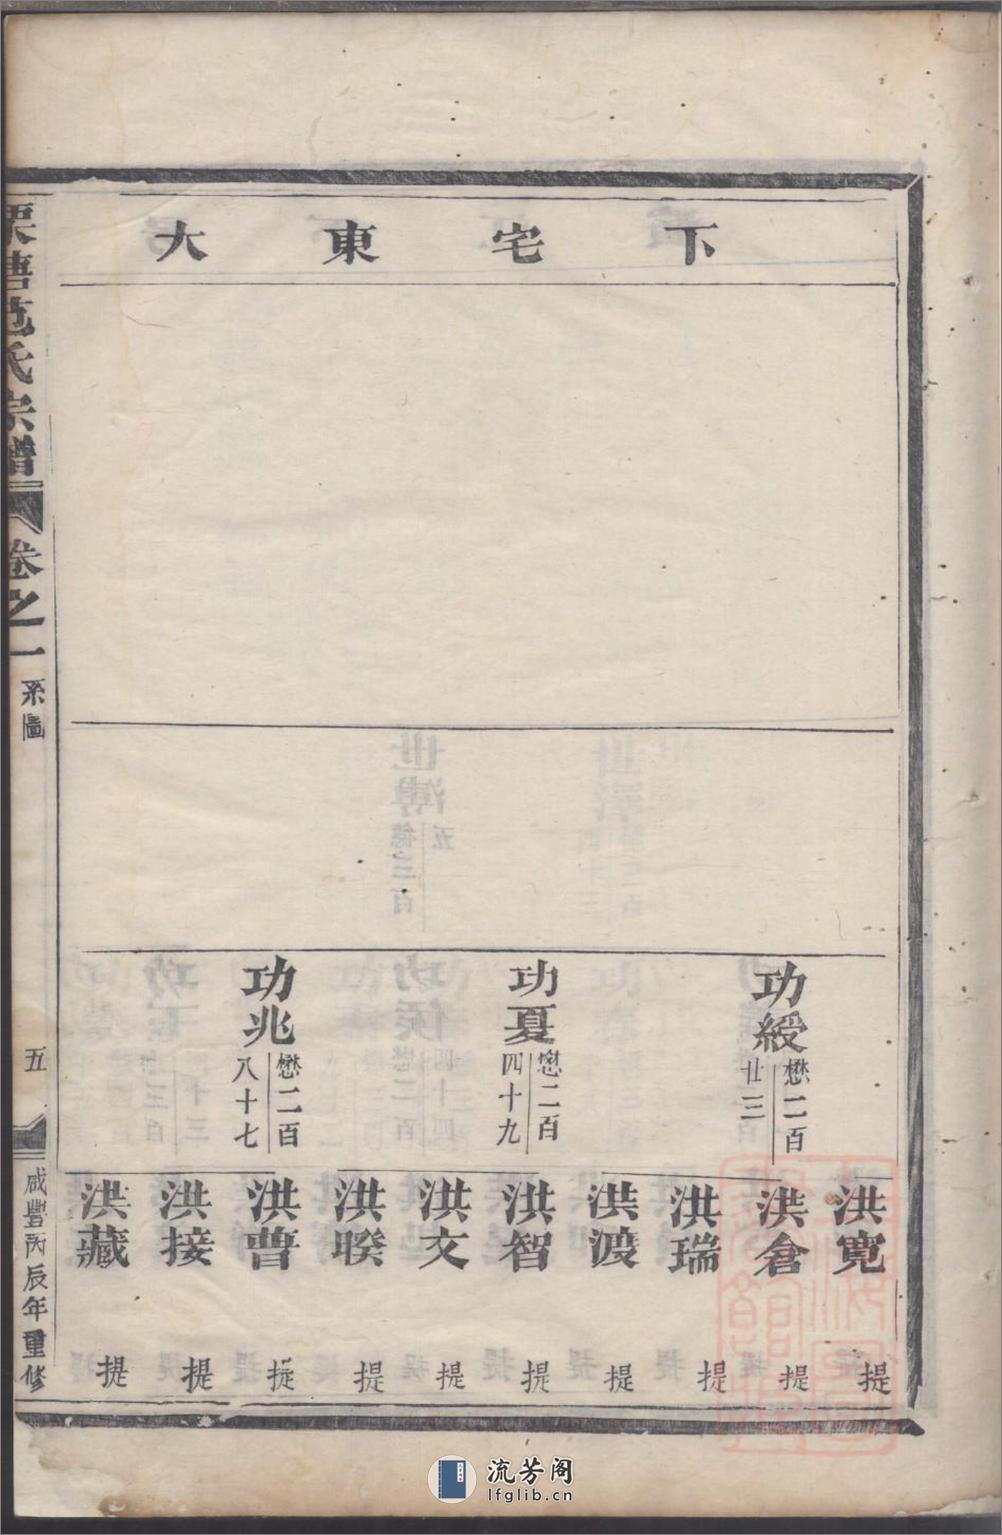 下宅東大
功綬
懋二百
廿三
功夏
懋二百
四十九
功兆
懋二百
八十七
洪寬 提
洪倉 提
洪瑞 提
洪渡 提
洪智 提
洪文 提
洪暌 提
洪曹 提
洪接 提
洪藏 提
栗塘范氏宗譜
卷之一
系圖
五
咸豐丙辰年重修
流芳阁
lfglib.cn